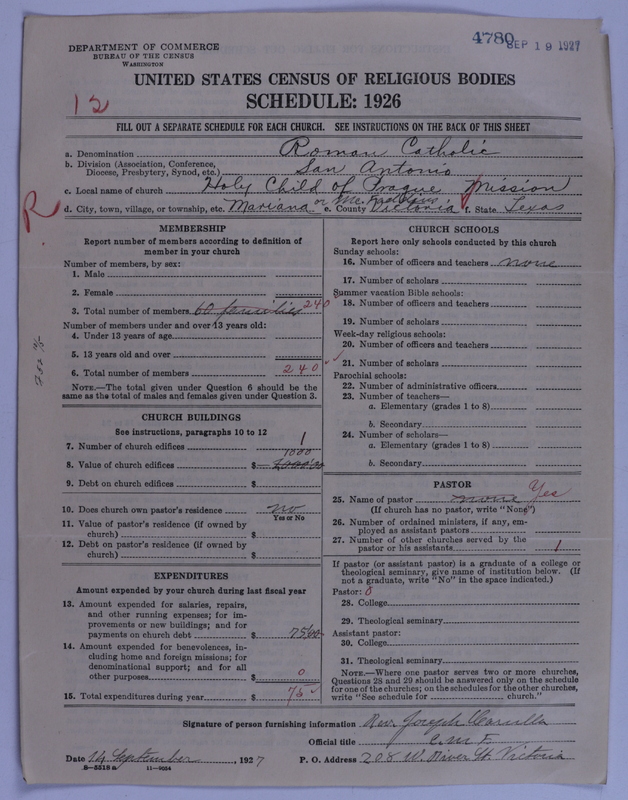 4780 SEP 19 1927
DEPARTMENT OF COMMERCE
BUREAU OF THE CENSUS
WASHINGTON
UNITED STATES CENSUS OF RELIGIOUS BODIES
SCHEDULE: 1926
12
FILL OUT A SEPARATE SCHEDULE FOR EACH CHURCH. SEE INSTRUCTIONS ON THE BACK OF THIS SHEET
a. Denomination Roman Catholic
b. Division (Association, Conference, Diocese, Presbytery, Synod, etc.) San Antonio
c. Local name of church Holy Child of Prague Mission
R
d. City, town, village, or township, etc. Mariana or e. County Victoria f. State Texas
MEMBERSHIP
Report number of members according to definition of member in your church
Number of members, by sex:
1. Male
2. Female
3. Total number of members 60 families 240
Number of members under and over 13 years old:
4. Under 13 years of age
5. 13 years old and over
6. Total number of members 240
NOTE.—The total given under Question 6 should be the same as the total of males and females given under Question 3.
CHURCH BUILDINGS
See instructions, paragraphs 10 to 12
7. Number of church edifices 1
8. Value of church edifices $ 1000
9. Debt on church edifices $
10. Does church own pastor's residence no
Yes or No
11. Value of pastor's residence (if owned by church) $
12. Debt on pastor's residence (if owned by church) $
EXPENDITURES
Amount expended by your church during last fiscal year
13. Amount expended for salaries, repairs, and other running expenses; for improvements or new buildings; and for payments on church debt $ 75.00
14. Amount expended for benevolences, including home and foreign missions; for denominational support; and for all other purposes $ 0
15. Total expenditures during year $ 75
CHURCH SCHOOLS
Report here only schools conducted by this church
Sunday schools:
16. Number of officers and teachers none
17. Number of scholars
Summer vacation Bible schools:
18. Number of officers and teachers
19. Number of scholars
Week-day religious schools:
20. Number of officers and teachers
21. Number of scholars
Parochial schools:
22. Number of administrative officers
23. Number of teachers—
a. Elementary (grades 1 to 8)
b. Secondary
24. Number of scholars—
a. Elementary (grades 1 to 8)
b. Secondary
PASTOR
25. Name of pastor none Yes
(If church has no pastor, write "None")
26. Number of ordained ministers, if any, employed as assistant pastors
27. Number of other churches served by the pastor or his assistants 1
If pastor (or assistant pastor) is a graduate of a college or theological seminary, give name of institution below. (If not a graduate, write "No" in the space indicated.)
Pastor: 0
28. College
29. Theological seminary
Assistant pastor:
30. College
31. Theological seminary
NOTE.—Where one pastor serves two or more churches, Questions 28 and 29 should be answered only on the schedule for one of the churches; on the schedules for the other churches, write "See schedule for church."
Signature of person furnishing information Rev. Joseph
Official title C.M.F.
Date 14 September, 1927 P. O. Address 208 W. River St. Victoria
8-5518 a 11-9054